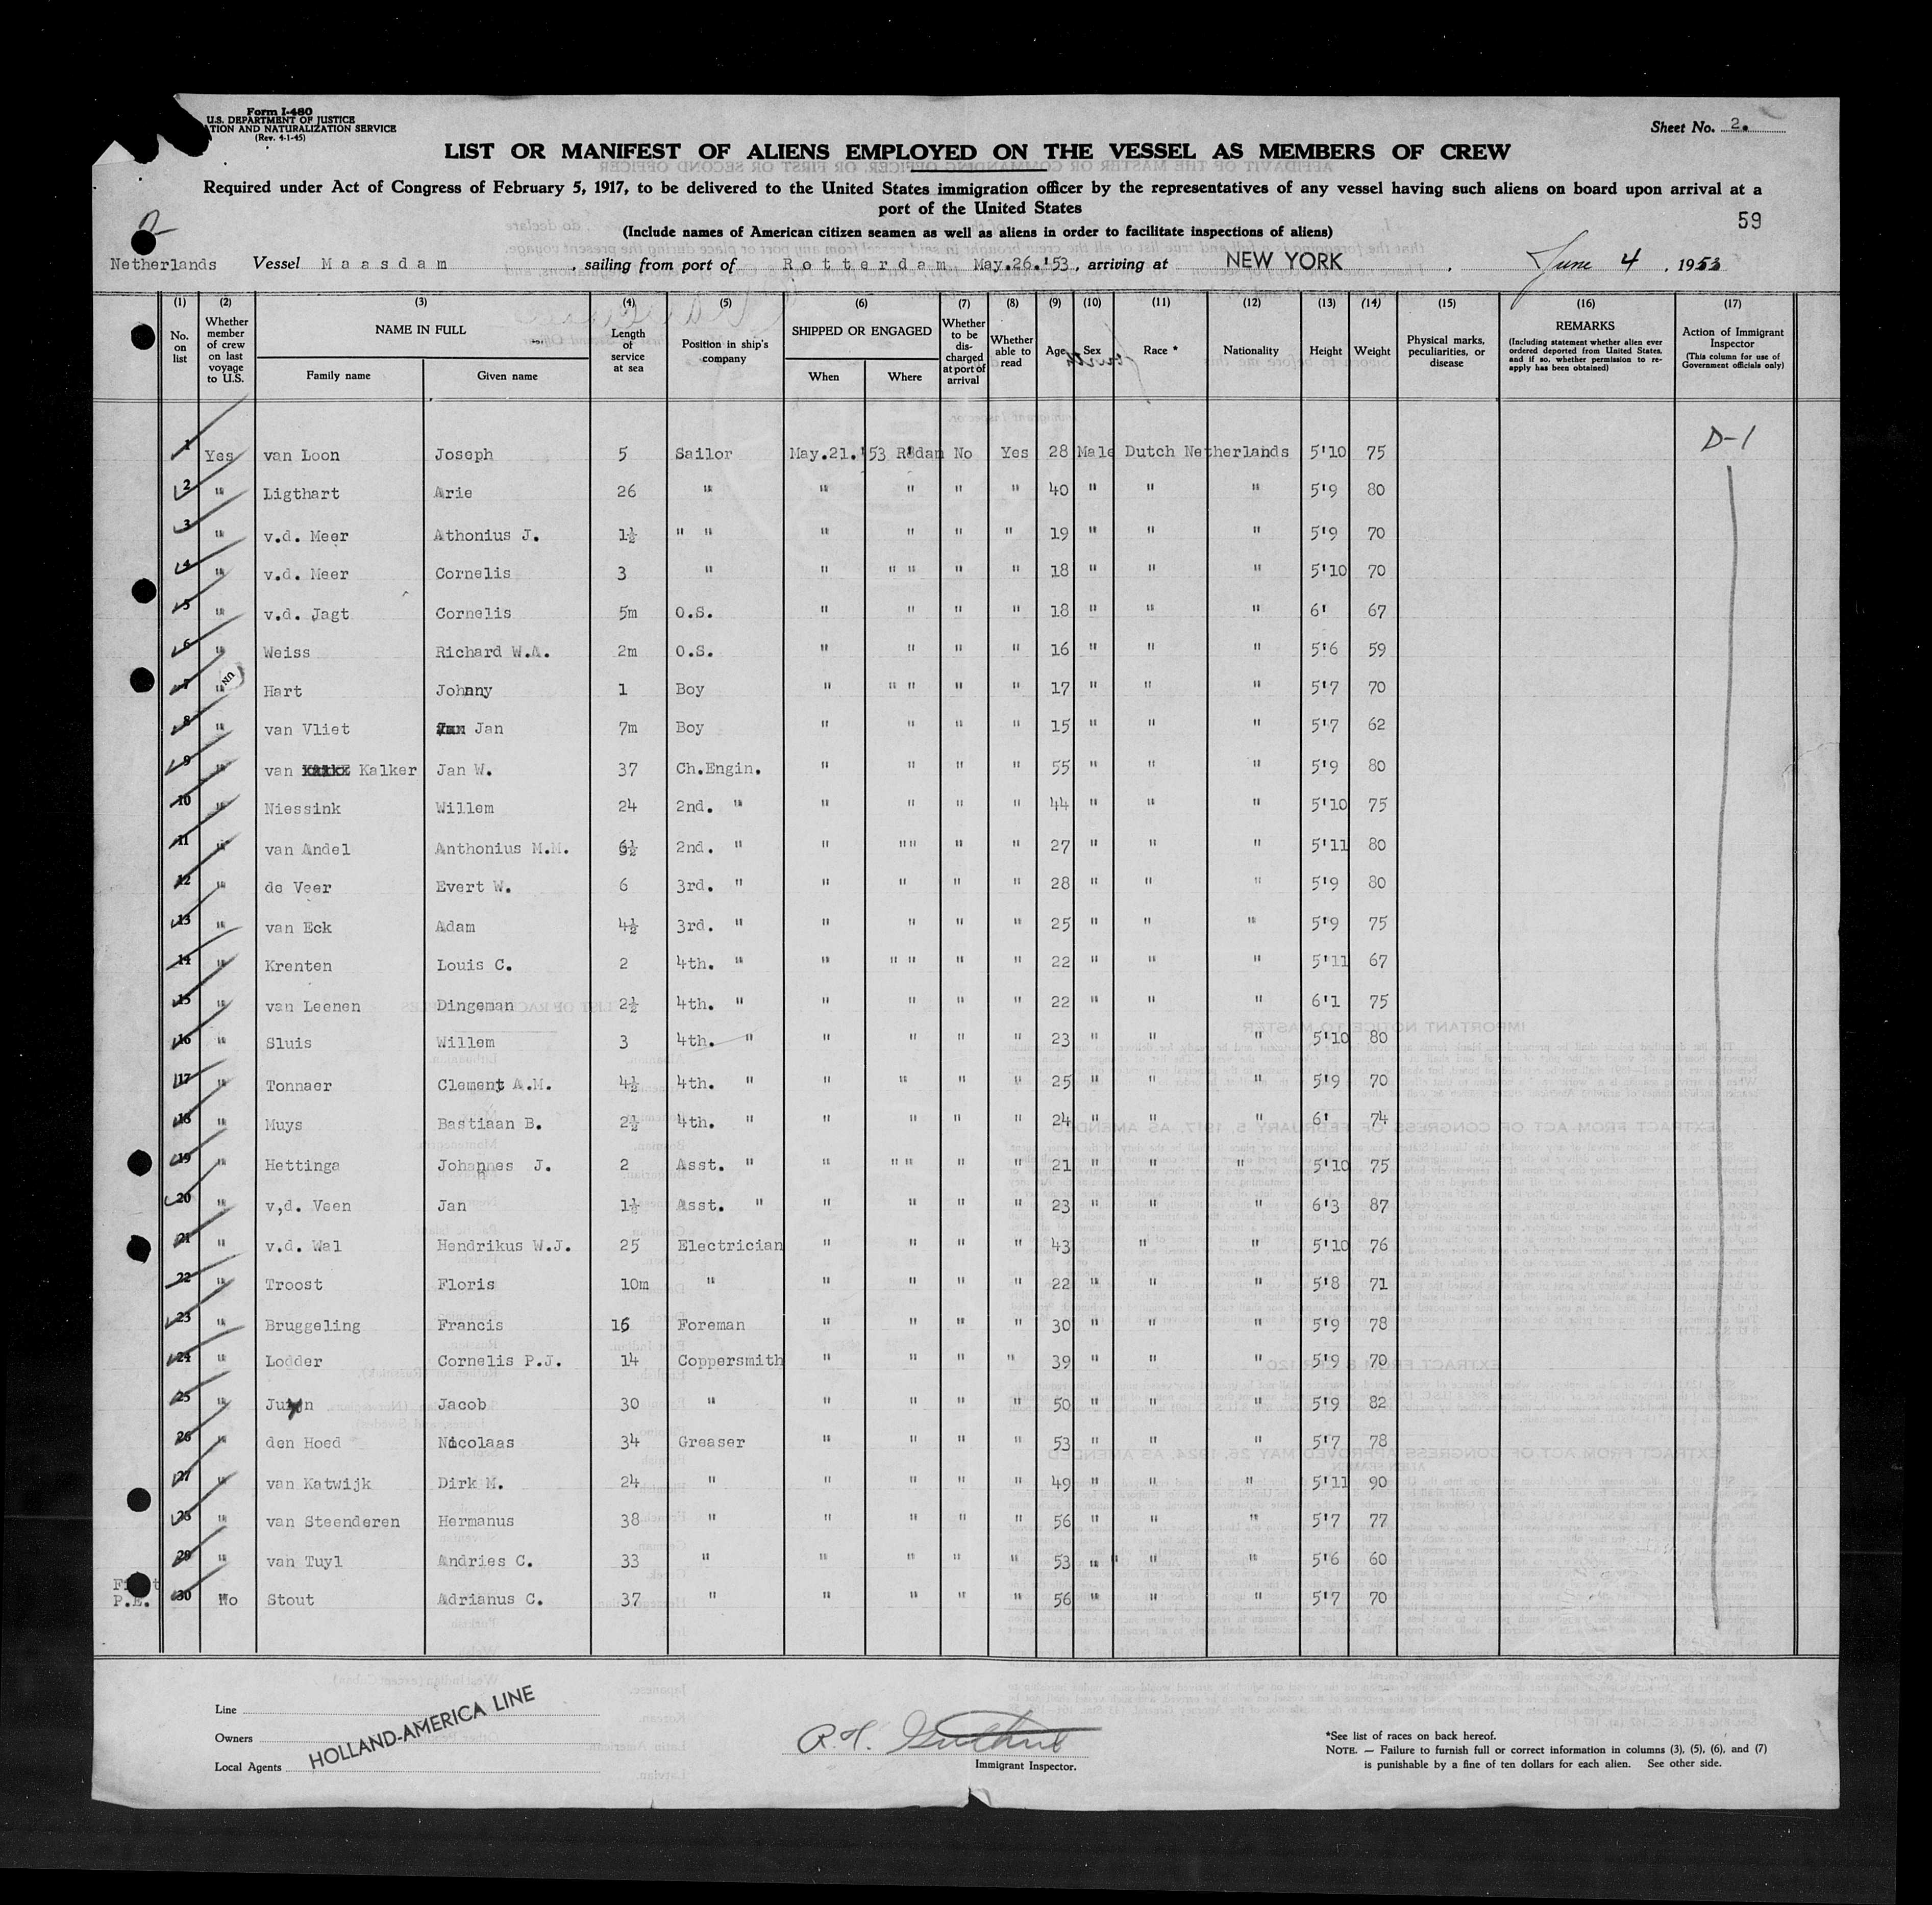 Form I-480
U.S. DEPARTMENT OF JUSTICE
ATION AND NATURALIZATION SERVICE
(Rev. 4-1-45)
Sheet No. 2.
LIST OR MANIFEST OF ALIENS EMPLOYED ON THE VESSEL AS MEMBERS OF CREW
Required under Act of Congress of February 5, 1917, to be delivered to the United States immigration officer by the representatives of any vessel having such aliens on board upon arrival at a
port of the United States
59
(Include names of American citizen seamen as well as aliens in order to facilitate inspections of aliens)
Netherlands Vessel Maasdam, sailing from port of Rotterdam May.26.'53, arriving at NEW YORK, June 4, 1953
(1) (2) (3) (4) (5) (6) (7) (8) (9) (10) (11) (12) (13) (14) (15) (16) (17)
No. on list
Whether member of crew on last voyage to U.S.
NAME IN FULL
Family name Given name
Length of service at sea
Position in ship's company
SHIPPED OR ENGAGED
When Where
Whether to be discharged at port of arrival
Whether able to read
Age Sex Race * Nationality Height Weight
Physical marks, peculiarities, or disease
REMARKS
(Including statement whether alien ever ordered deported from United States, and if so, whether permission to reapply has been obtained)
Action of Immigrant Inspector
(This column for use of Government officials only)
D-1
1 Yes van Loon Joseph 5 Sailor May.21.'53 R'dam No Yes 28 Male Dutch Netherlands 5'10 75
2 " Ligthart Arie 26 " " " " " 40 " " " 5'9 80
3 " v.d. Meer Athonius J. 1½ " " " " " " 19 " " " 5'9 70
4 " v.d. Meer Cornelis 3 " " " " " " 18 " " " 5'10 70
5 " v.d. Jagt Cornelis 5m O.S. " " " " 18 " " " 6' 67
6 " Weiss Richard W.A. 2m O.S. " " " " 16 " " " 5'6 59
7 " Hart Johnny 1 Boy " " " " " 17 " " " 5'7 70
8 " van Vliet Jan 7m Boy " " " " 15 " " " 5'7 62
9 " van Kalker Jan W. 37 Ch.Engin. " " " " 55 " " " 5'9 80
10 " Niessink Willem 24 2nd. " " " " " 44 " " " 5'10 75
11 " van Andel Anthonius M.M. 6½ 2nd. " " "" " " 27 " " " 5'11 80
12 " de Veer Evert W. 6 3rd. " " " " " 28 " " " 5'9 80
13 " van Eck Adam 4½ 3rd. " " " " " 25 " " " 5'9 75
14 " Krenten Louis C. 2 4th. " " " " " " 22 " " " 5'11 67
15 " van Leenen Dingeman 2½ 4th. " " " " " 22 " " " 6'1 75
16 " Sluis Willem 3 4th. " " " " " 23 " " " 5'10 80
17 " Tonnaer Clement A.M. 4½ 4th. " " " " " 25 " " " 5'9 70
18 " Muys Bastiaan B. 2½ 4th. " " " " " 24 " " " 6' 74
19 " Hettinga Johannes J. 2 Asst. " " " " " " 21 " " " 5'10 75
20 " v,d. Veen Jan 1½ Asst. " " " " " 23 " " " 6'3 87
21 " v.d. Wal Hendrikus W.J. 25 Electrician " " " " 43 " " " 5'10 76
22 " Troost Floris 10m " " " " " 22 " " " 5'8 71
23 " Bruggeling Francis 16 Foreman " " " " 30 " " " 5'9 78
24 " Lodder Cornelis P.J. 14 Coppersmith " " " " 39 " " " 5'9 70
25 " Jacob 30 " " " " " 50 " " " 5'9 82
26 " den Hoed Nicolaas 34 Greaser " " " " 53 " " " 5'7 78
27 " van Katwijk Dirk M. 24 " " " " " 49 " " " 5'11 90
28 " van Steenderen Hermanus 38 " " " " " 56 " " " 5'7 77
29 " van Tuyl Andries C. 33 " " " " " 53 " " " 5'6 60
P.E. 30 No Stout Adrianus C. 37 " " " " " 56 " " " 5'7 70
Line
Owners
Local Agents
HOLLAND-AMERICA LINE
R.H.
Immigrant Inspector.
*See list of races on back hereof.
NOTE. — Failure to furnish full or correct information in columns (3), (5), (6), and (7)
is punishable by a fine of ten dollars for each alien. See other side.